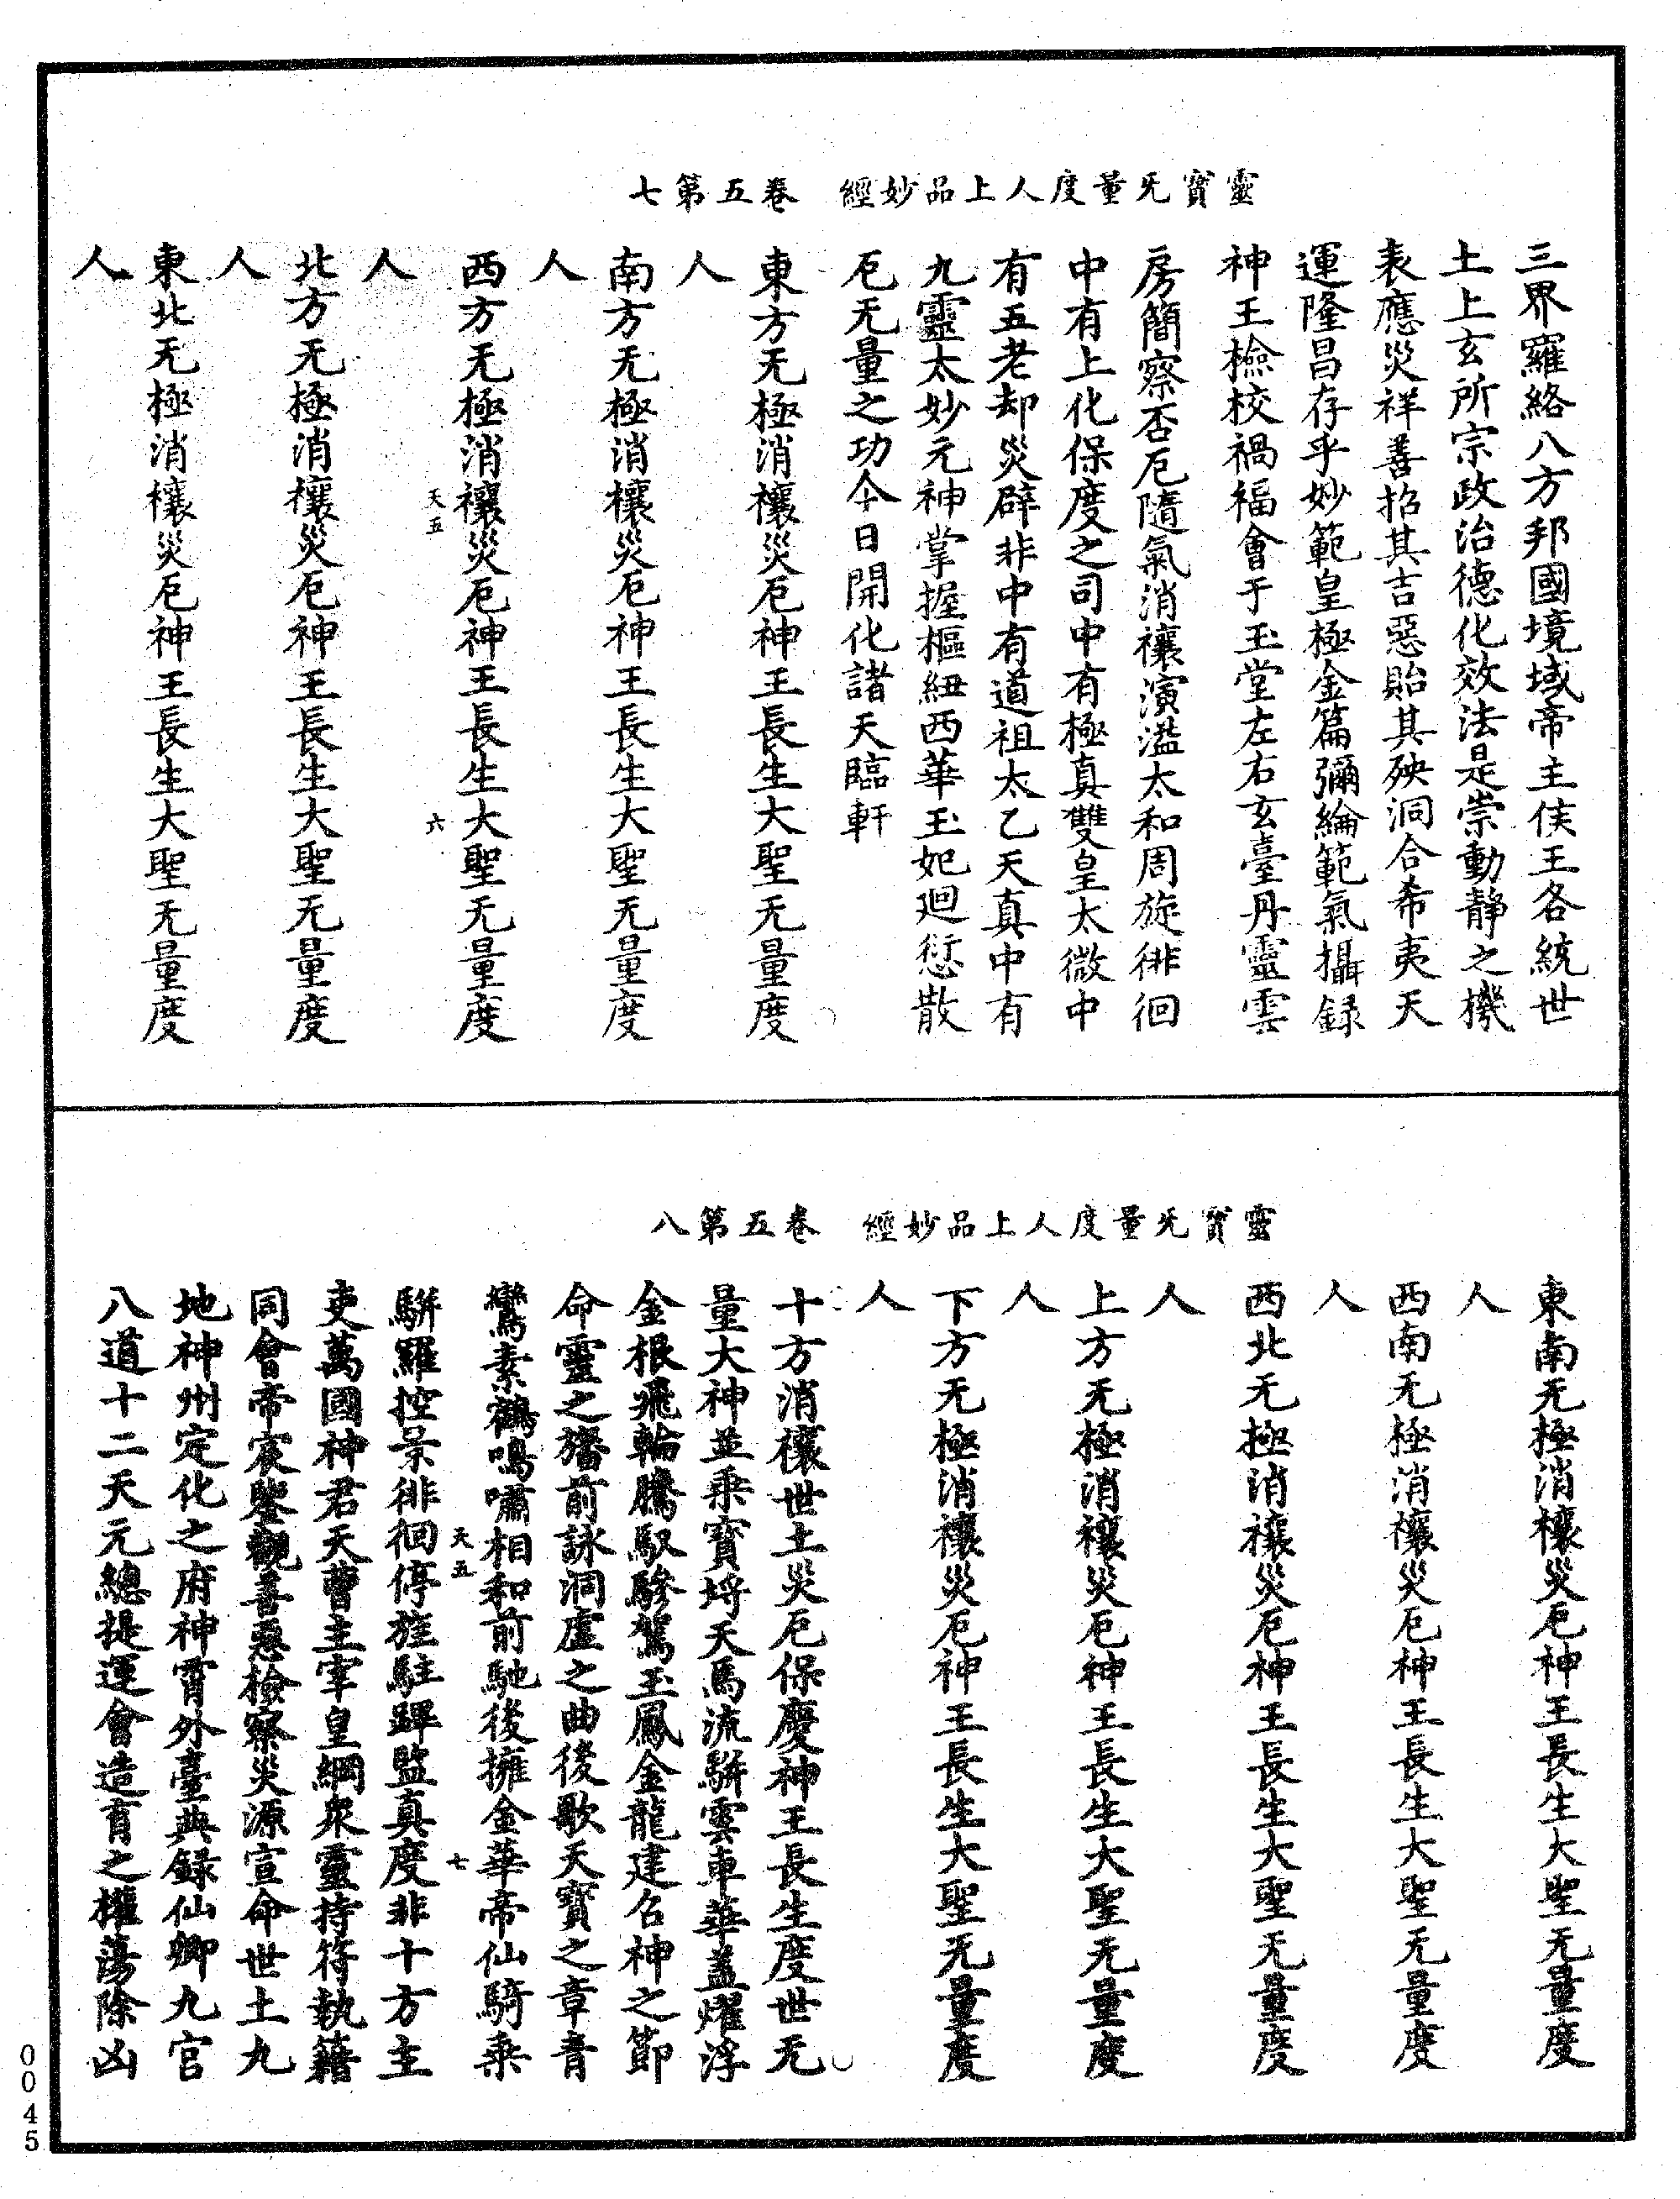 靈寳旡量度人上品妙經　卷五第七
三界羅絡八方邦國境域帝主侯王各統世
土上玄所宗政治德化效法是崇動静之機
表應災祥善招其吉惡貽其殃洞合希夷天
運隆昌存乎妙範皇極金篇彌綸範氣攝録
神王檢校禍福會于玉堂左右玄臺丹靈雲
房簡察否厄隨氣消禳演溢太和周旋徘徊
中有上化保度之司中有極真雙皇太微中
有五老却災辟非中有道祖太乙天真中有
九靈太妙元神掌握樞紐西華玉妃迴愆散
厄无量之功今日開化諸天臨軒
東方无極消禳災厄神王長生大聖无量度
人
南方无極消禳災厄神王長生大聖无量度
人
西方无極消禳災厄神王長生大聖无量度
天五　六
人
北方无極消禳災厄神王長生大聖无量度
人
東北无極消禳災厄神王長生大聖无量度
人
靈寳旡量度人上品妙經　卷五第八
東南无極消禳災厄神王長生大聖无量度
人
西南无極消禳災厄神王長生大聖无量度
人
西北无極消禳災厄神王長生大聖无量度
人
上方无極消禳災厄神王長生大聖无量度
人
下方无極消禳災厄神王長生大聖无量度
人
十方消禳世土災厄保慶神王長生度世无
量大神並乘寳埒天馬流騈雲車華蓋燿浮
金根飛輪騰馭驂駕玉鳳金龍建名神之節
命靈之旛前詠洞虛之曲後歌天寳之章青
鸞素鶴鳴嘯相和前馳後擁金華帝仙騎乘
天五　七
騈羅控景徘徊停旌駐蹕監真度非十方主
吏萬國神君天曹主宰皇綱衆靈持符執籍
同會帝宸鑒觀善惡檢察災源宣命世土九
地神州定化之府神霄外臺典録仙卿九官
八道十二天元總提運會造育之權蕩除凶
0045